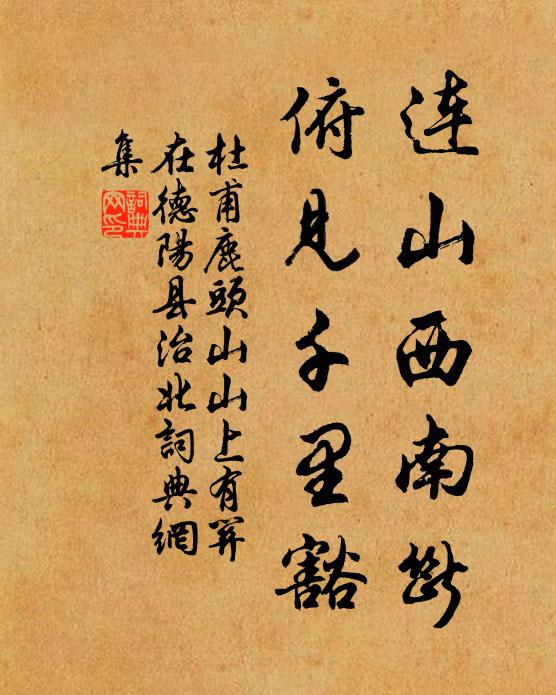 连山西南断
俯见千里豁
杜甫鹿頭山山上有關
在德陽县治北詞典網
集
詞典
网印